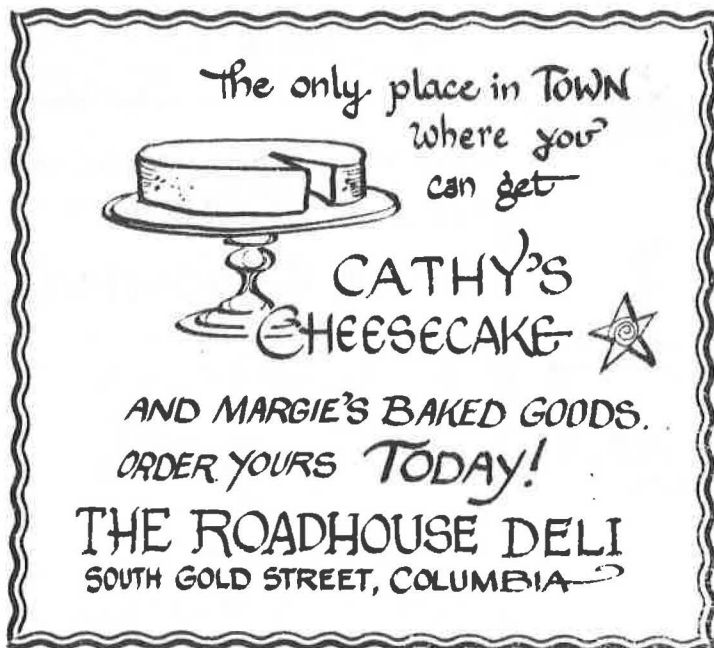 the only place in TOWN
where you
can get
CATHY'S
CHEESECAKE
AND MARGIE'S BAKED GOODS.
ORDER YOURS TODAY!
THE ROADHOUSE DELI
SOUTH GOLD STREET, COLUMBIA